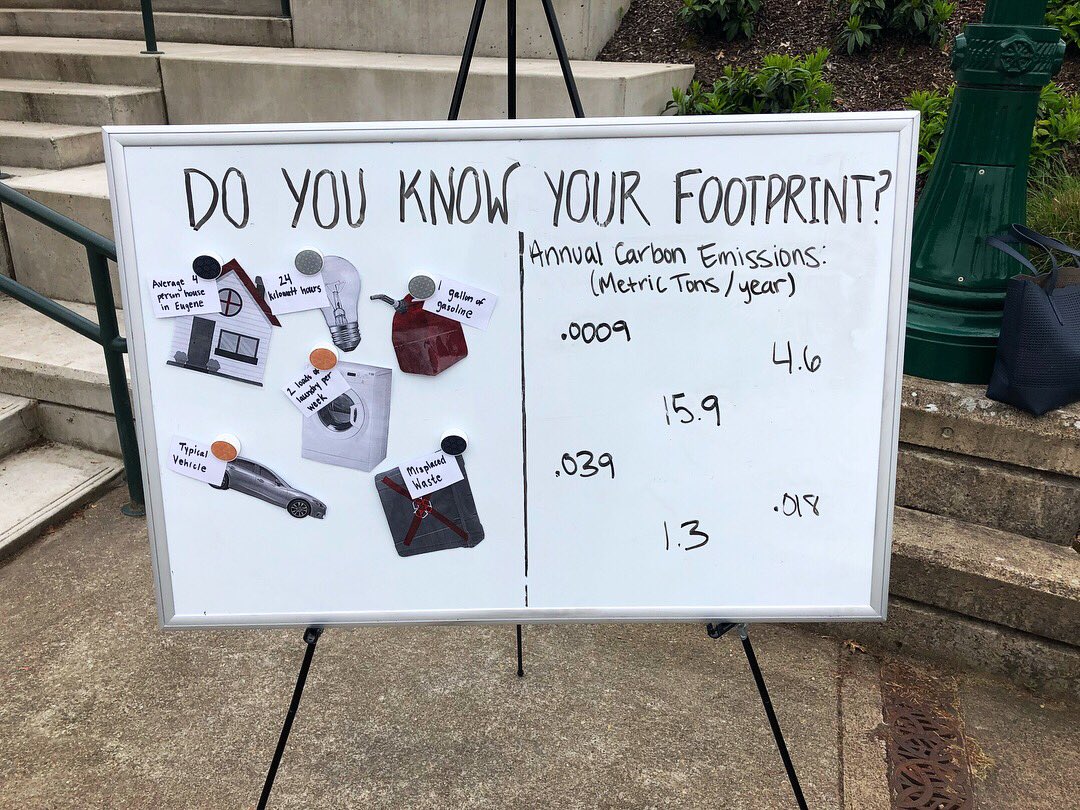 DO YOU KNOW YOUR FOOTPRINT?
Average 4
person house
in Eugene
24
kilowatt hours
1 gallon of
gasoline
2 loads of
laundry per
week
Typical
Vehicle
Misplaced
Waste
Annual Carbon Emissions:
(Metric Tons/year)
.0009
4.6
15.9
.039
.018
1.3